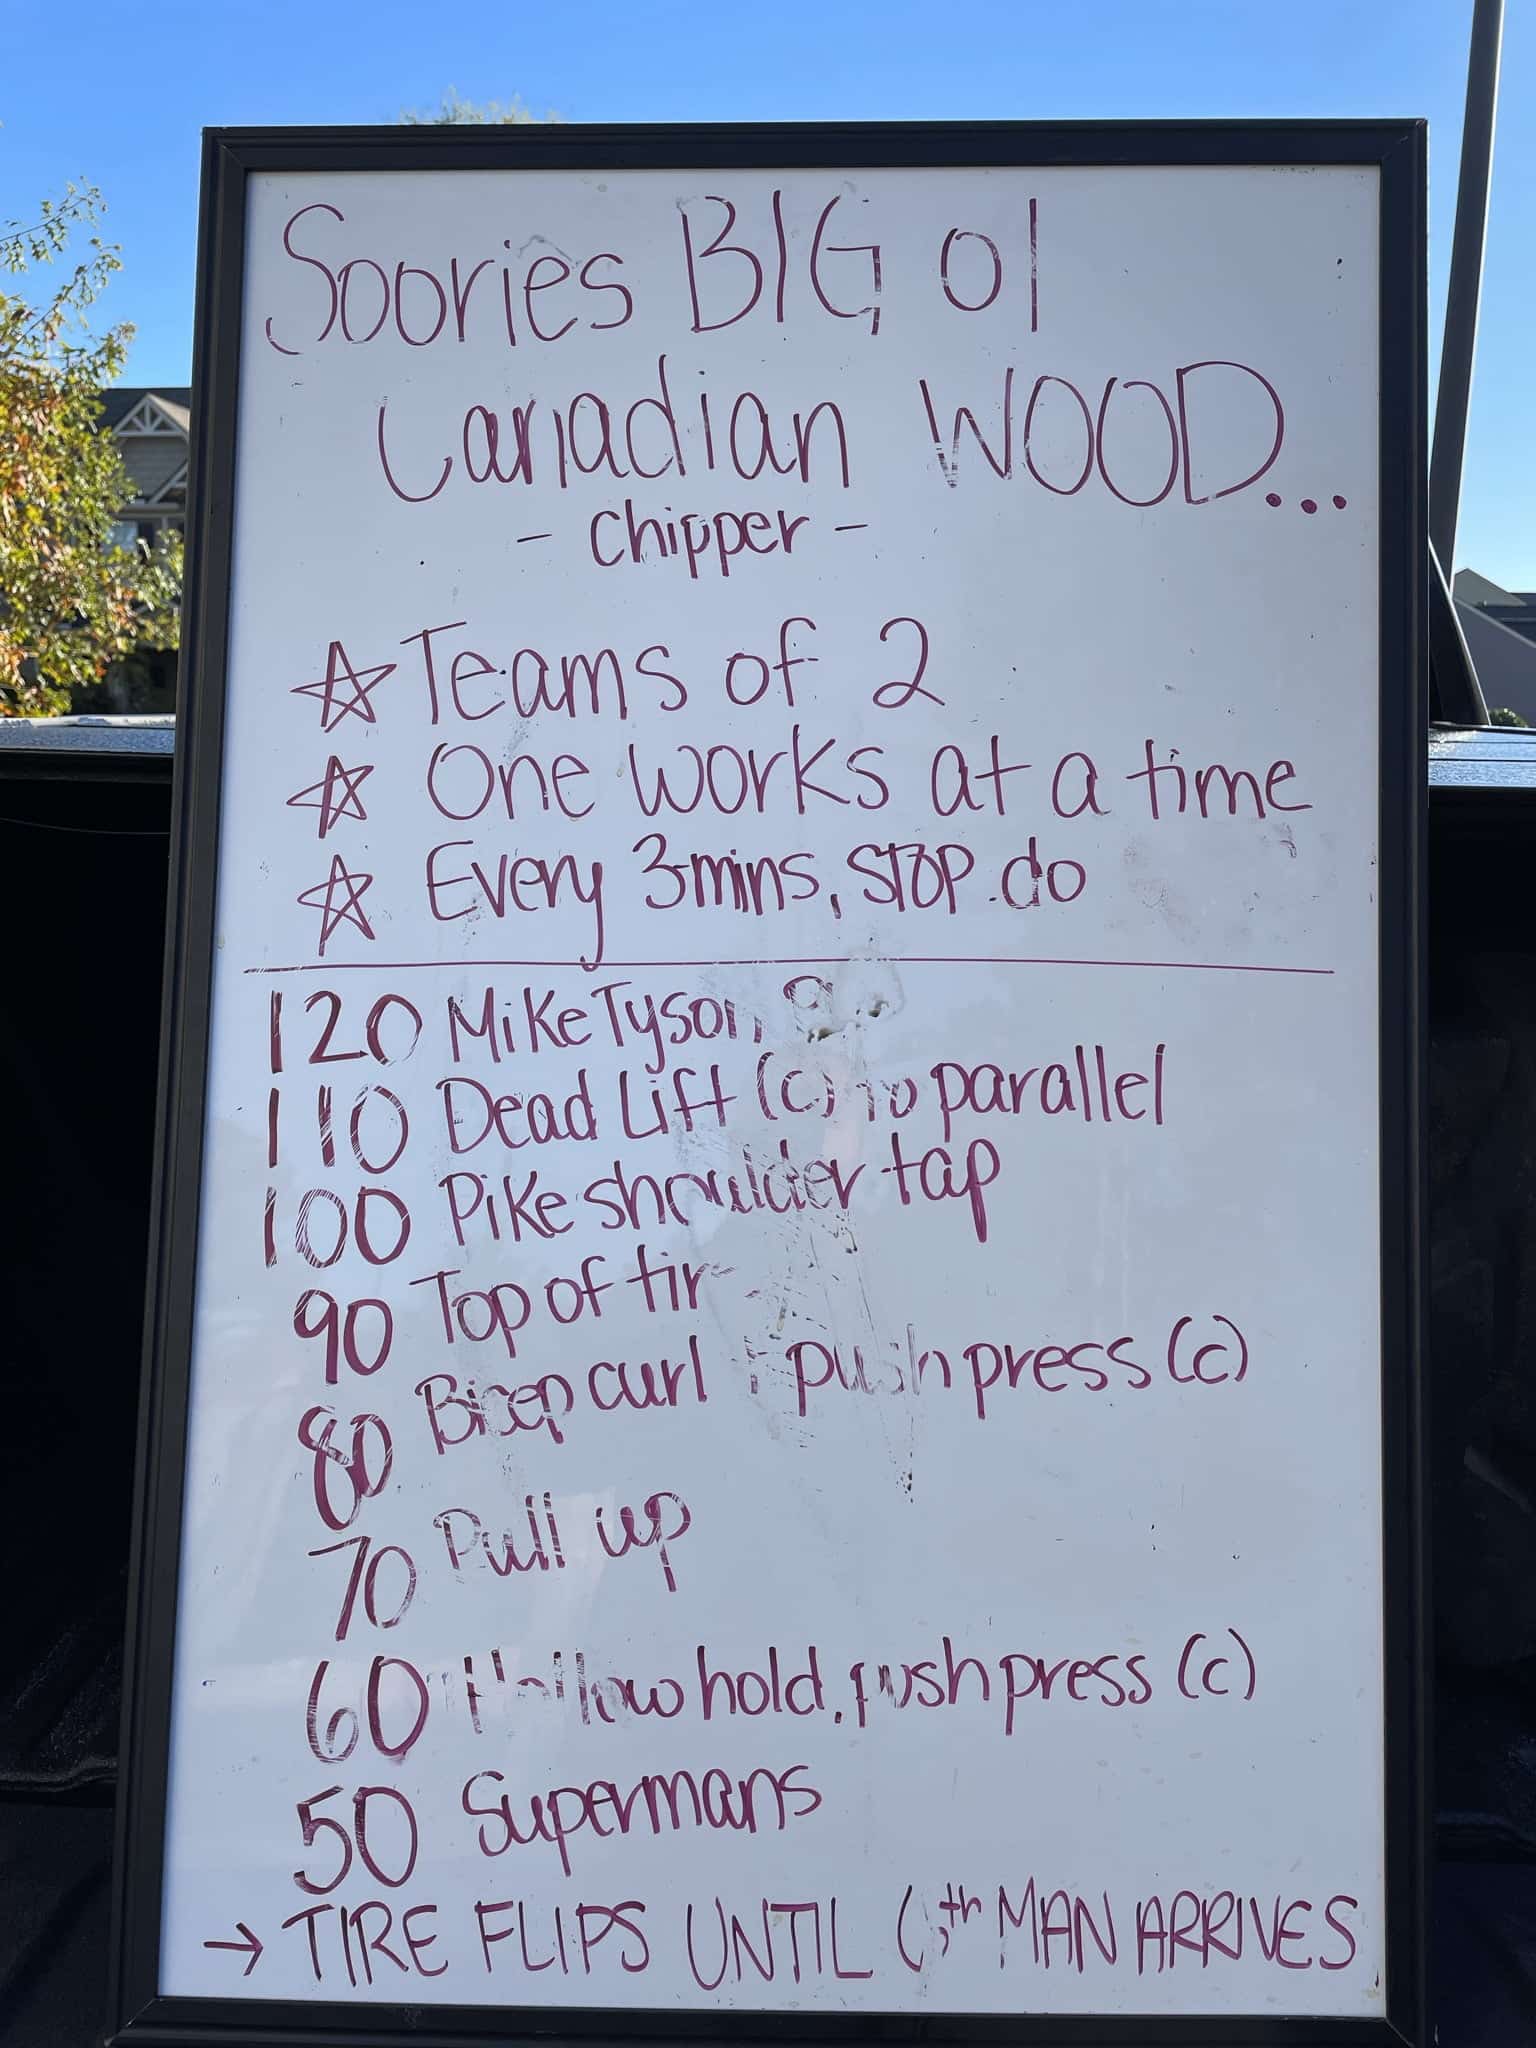 Soories BIG ol
Canadian WOOD...
- Chipper -
☆ Teams of 2
☆ One works at a time
☆ Every 3 mins, STOP. do
120 Mike Tyson
110 Dead Lift (c) to parallel
100 Pike shoulder tap
90 Top of
80 Bicep curl push press (c)
70 Pull up
60 Hollow hold, push press (c)
50 Supermans
→ TIRE FLIPS UNTIL 6th MAN ARRIVES